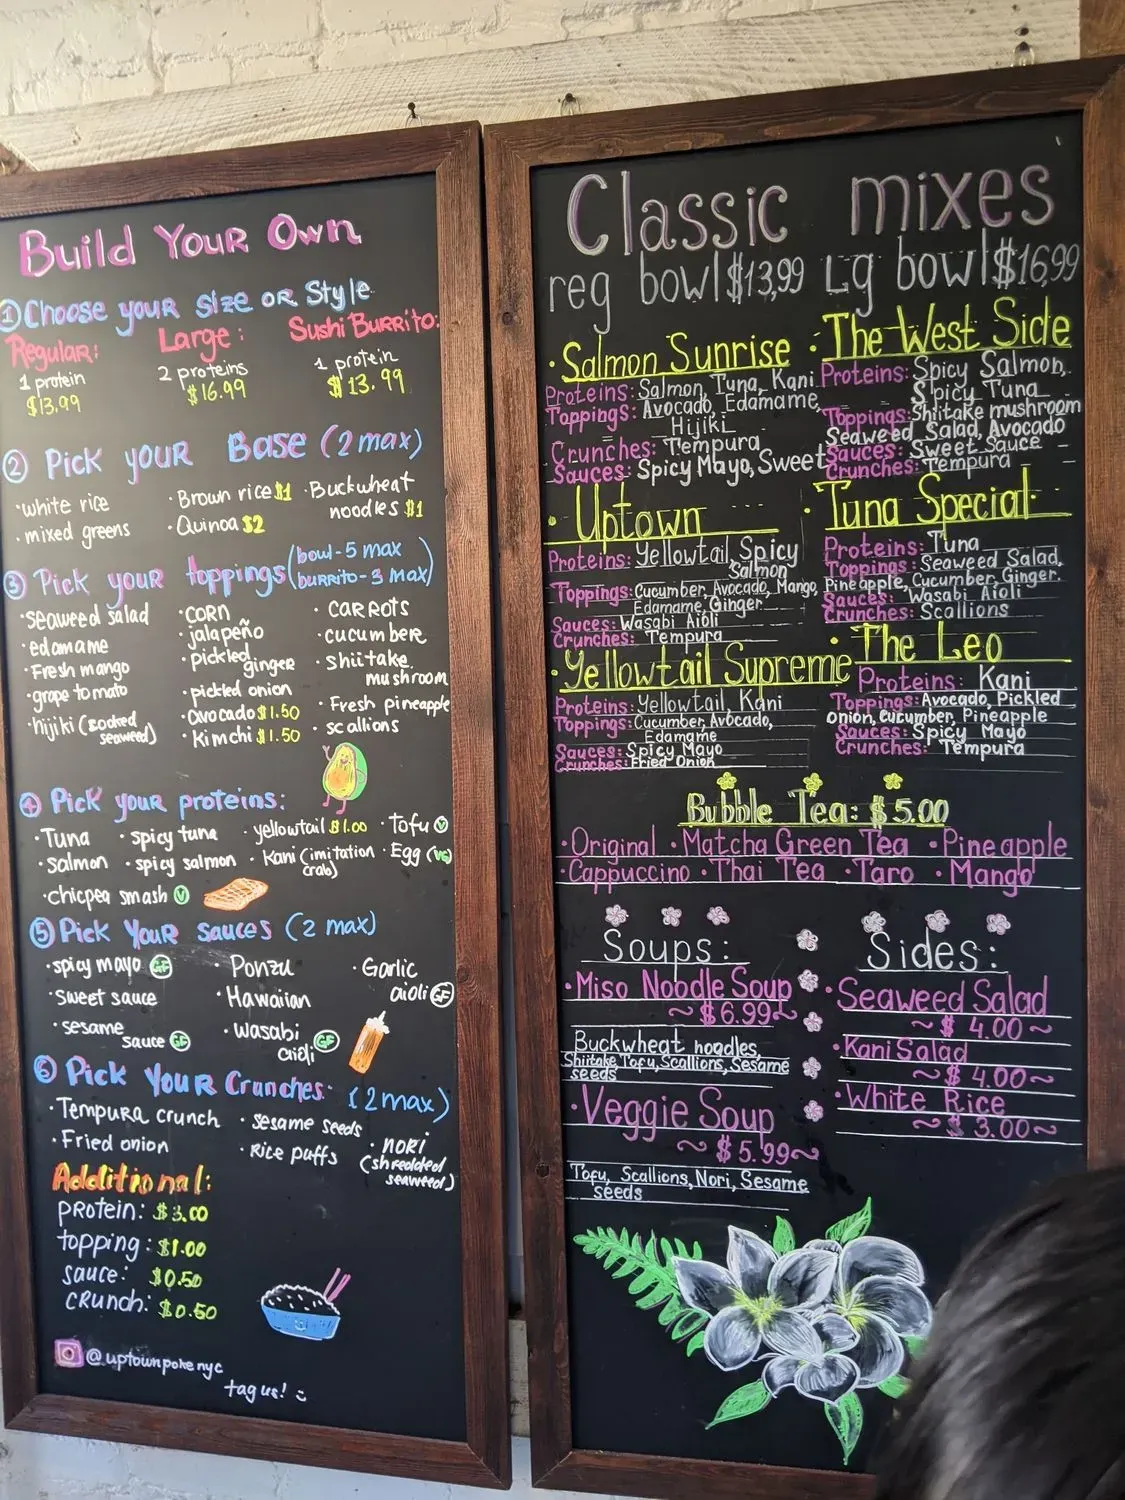 Build Your Own
① Choose your size or Style
Regular: Large: Sushi Burrito:
1 protein 2 proteins 1 protein
$13.99 $16.99 $13.99
② Pick your Base (2 max)
·white rice ·Brown rice $1 ·Buckwheat
noodles $1
·mixed greens ·Quinoa $2
③ Pick your toppings (bowl-5 max
burrito-3 max)
·seaweed salad ·corn ·carrots
·edamame ·jalapeño ·cucumber
·Fresh mango ·pickled ginger ·shiitake
mushroom
·grape tomato ·pickled onion ·Fresh pineapple
·hijiki (cooked
seaweed) ·avocado $1.50 ·scallions
·Kimchi $1.50
④ Pick your proteins:
·Tuna ·spicy tuna ·yellowtail $1.00 ·Tofu V
·salmon ·spicy salmon ·Kani (imitation
crab) ·Egg (VG)
·chicpea smash V
⑤ Pick Your sauces (2 max)
·spicy mayo GF ·Ponzu ·Garlic
aioli GF
·sweet sauce ·Hawaiian
·sesame
sauce GF ·wasabi
aioli GF
⑥ Pick Your Crunches: (2max)
·Tempura crunch ·sesame seeds
·Fried onion ·Rice puffs ·nori
(shredded
seaweed)
Additional:
protein: $3.00
topping: $1.00
sauce: $0.50
crunch: $0.50
@uptownpokenyc
tag us!
Classic mixes
reg bowl $13,99 Lg bowl $16,99
·Salmon Sunrise
Proteins: Salmon, Tuna, Kani
Toppings: Avocado, Edamame,
Hijiki
Crunches: Tempura
Sauces: Spicy Mayo, Sweet
·The West Side
Proteins: Spicy Salmon,
Spicy Tuna
Toppings: Shiitake mushroom
Seaweed Salad, Avocado
Sauces: Sweet Sauce
Crunches: Tempura
·Uptown
Proteins: Yellowtail, Spicy
Salmon
Toppings: Cucumber, Avocado, Mango,
Edamame, Ginger
Sauces: Wasabi Aioli
Crunches: Tempura
·Tuna Special
Proteins: Tuna
Toppings: Seaweed Salad,
Pineapple, Cucumber, Ginger
Sauces: Wasabi Aioli
Crunches: Scallions
·Yellowtail Supreme
Proteins: Yellowtail, Kani
Toppings: Cucumber, Avocado,
Edamame
Sauces: Spicy Mayo
Crunches: Fried Onion
·The Leo
Proteins: Kani
Toppings: Avocado, Pickled
Onion, Cucumber, Pineapple
Sauces: Spicy Mayo
Crunches: Tempura
Bubble Tea: $5.00
·Original ·Matcha Green Tea ·Pineapple
·Cappuccino ·Thai Tea ·Taro ·Mango
Soups:
·Miso Noodle Soup
~$6.99~
Buckwheat noodles,
Shiitake Tofu, Scallions, Sesame
seeds
·Veggie Soup
~$5.99~
Tofu, Scallions, Nori, Sesame
seeds
Sides:
·Seaweed Salad
~$4.00~
·Kani Salad
~$4.00~
·White Rice
~$3.00~